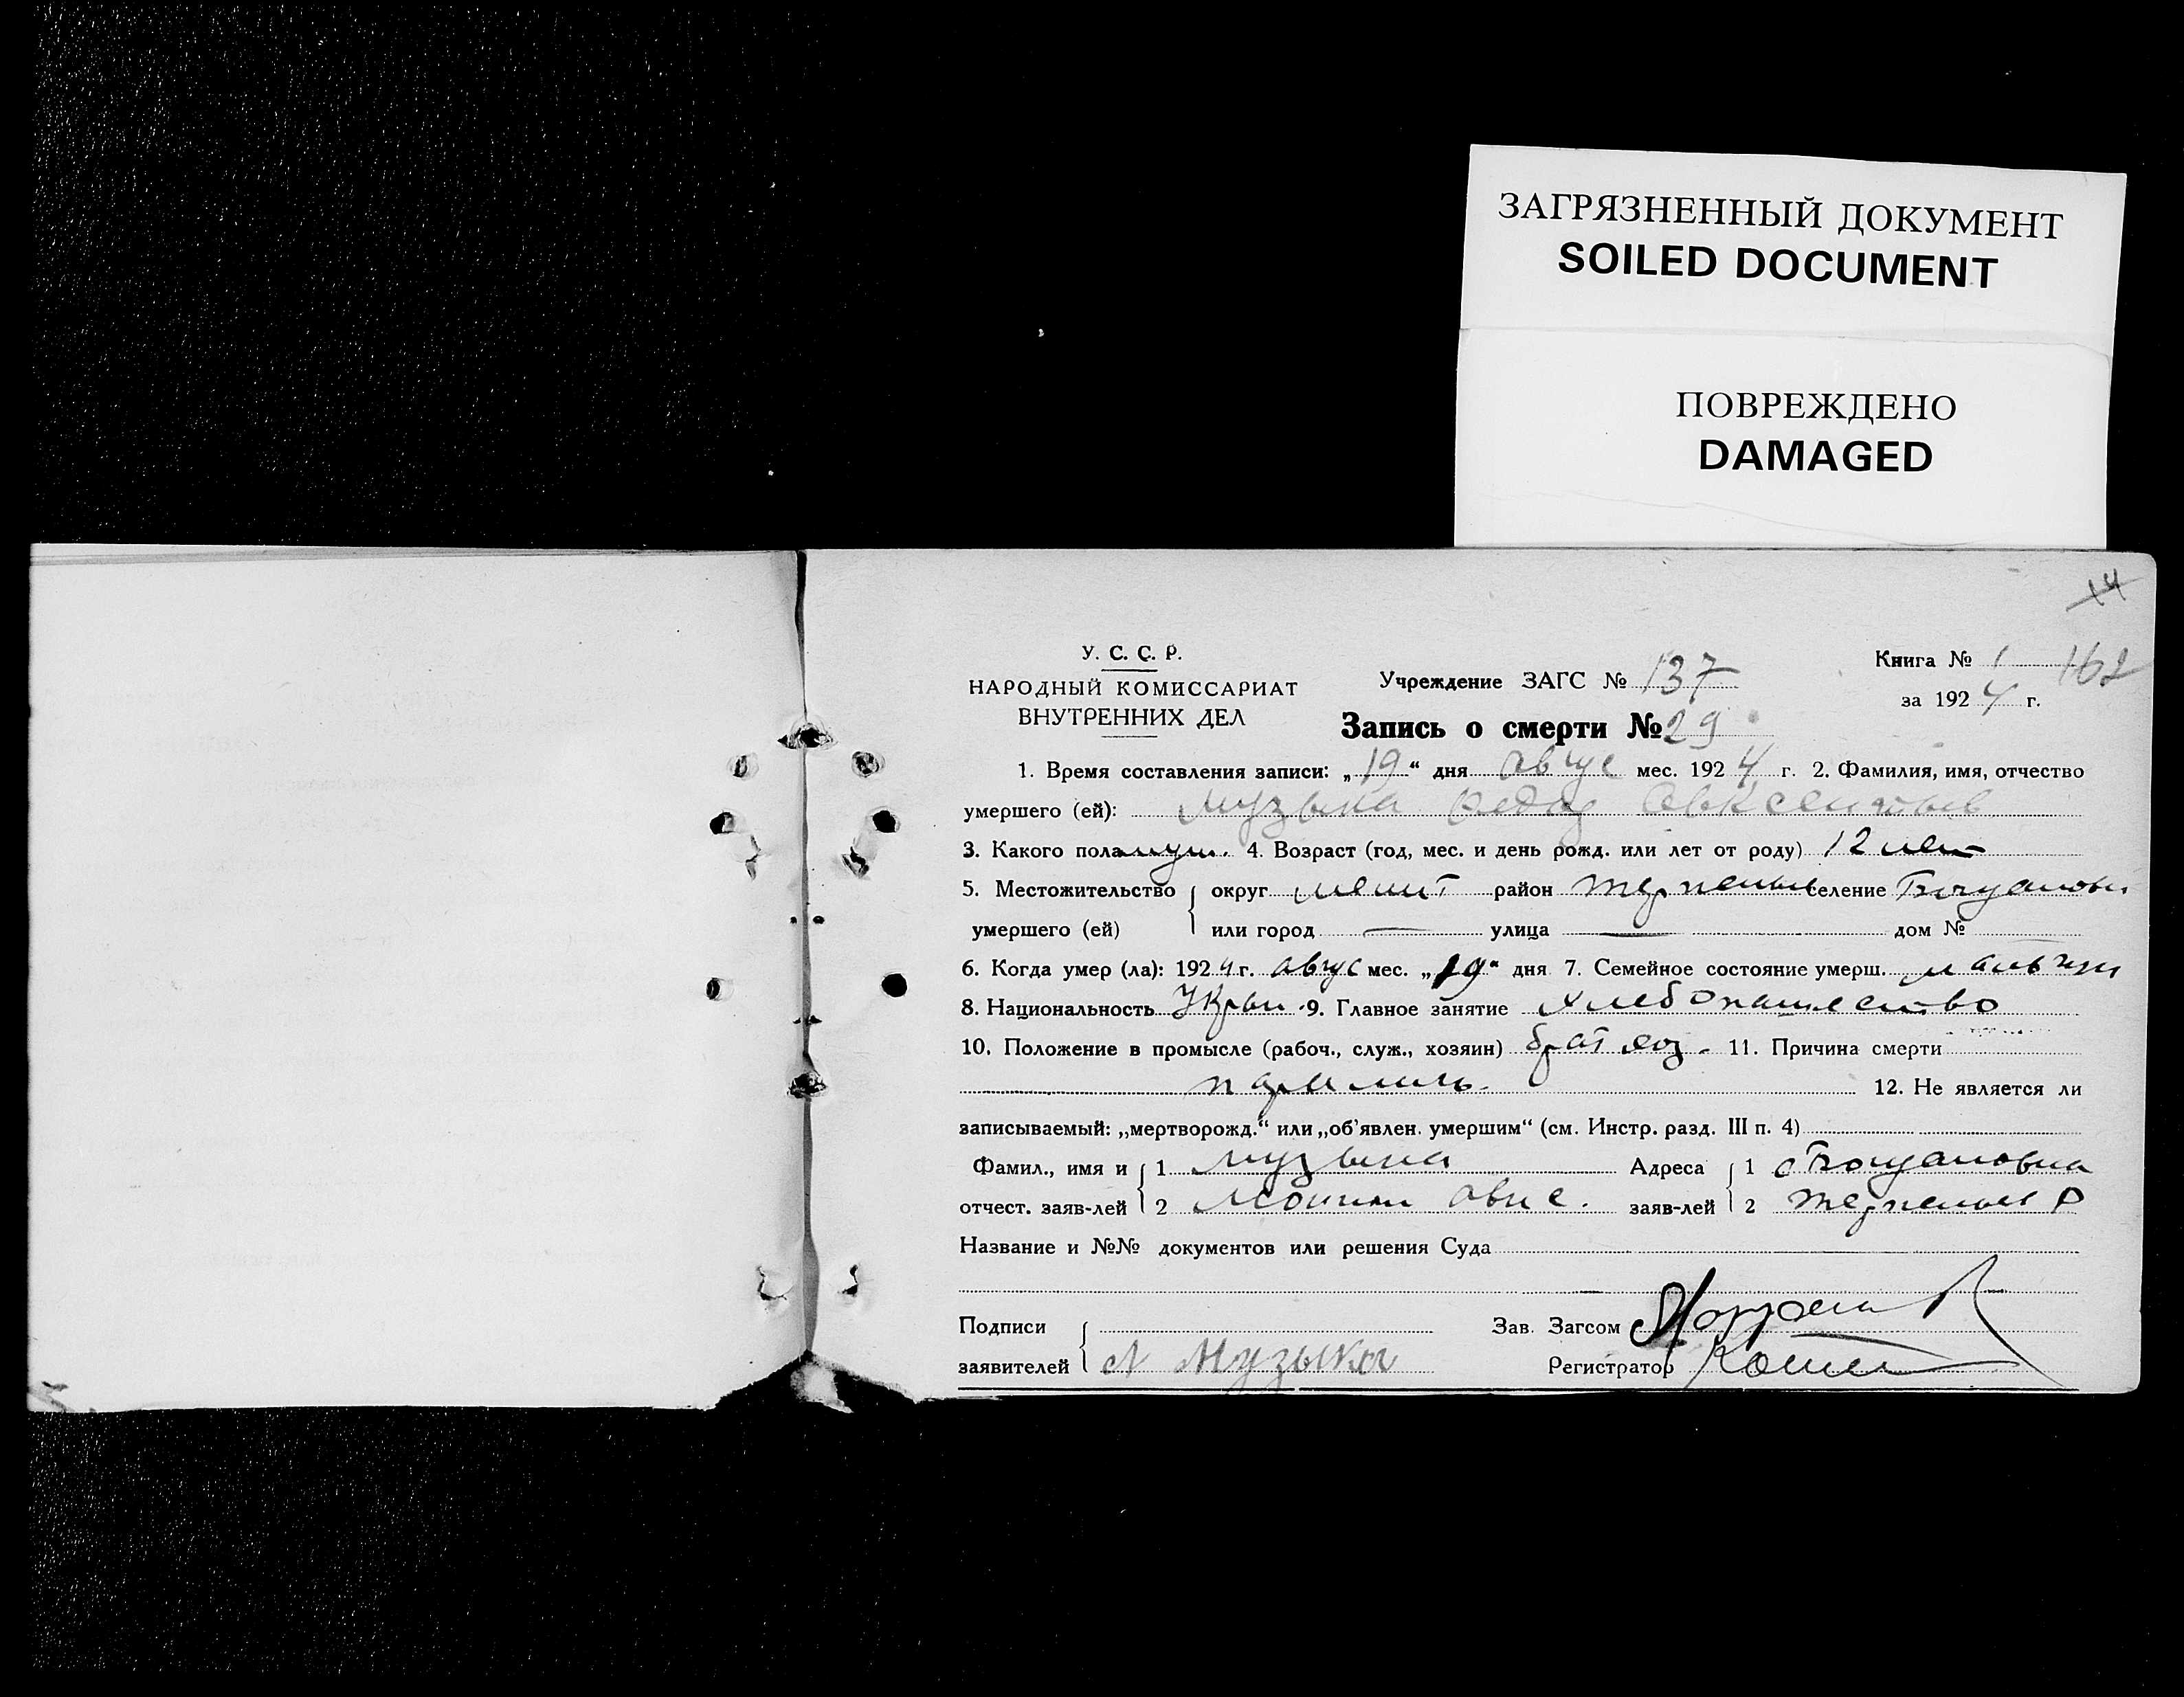 ЗАГРЯЗНЕННЫЙ ДОКУМЕНТ
SOILED DOCUMENT
ПОВРЕЖДЕНО
DAMAGED
14
У. С. С. Р.
НАРОДНЫЙ КОМИССАРИАТ
ВНУТРЕННИХ ДЕЛ
Учреждение ЗАГС № 137
Книга № 1 162
за 1924 г.
Запись о смерти № 29
1. Время составления записи: „19“ дня авгус мес. 1924 г. 2. Фамилия, имя, отчество
умершего (ей): Музыка Федор Авксентьев
3. Какого пола муш. 4. Возраст (год, мес. и день рожд. или лет от роду) 12 лет
5. Местожительство округ район селение
умершего (ей) или город — улица — дом №
6. Когда умер (ла): 1924 г. авгус мес. „19“ дня 7. Семейное состояние умерш.
8. Национальность Украи 9. Главное занятие хлебопашество
10. Положение в промысле (рабоч., служ., хозяин) брат хоз. 11. Причина смерти
12. Не является ли
записываемый: „мертворожд.“ или „об'явлен. умершим“ (см. Инстр. разд. III п. 4)
Фамил., имя и 1 Музыка Адреса 1 с Богдановка
отчест. заяв-лей 2 заяв-лей 2
Название и №№ документов или решения Суда
Подписи Зав. Загсом
заявителей Музыка Регистратор